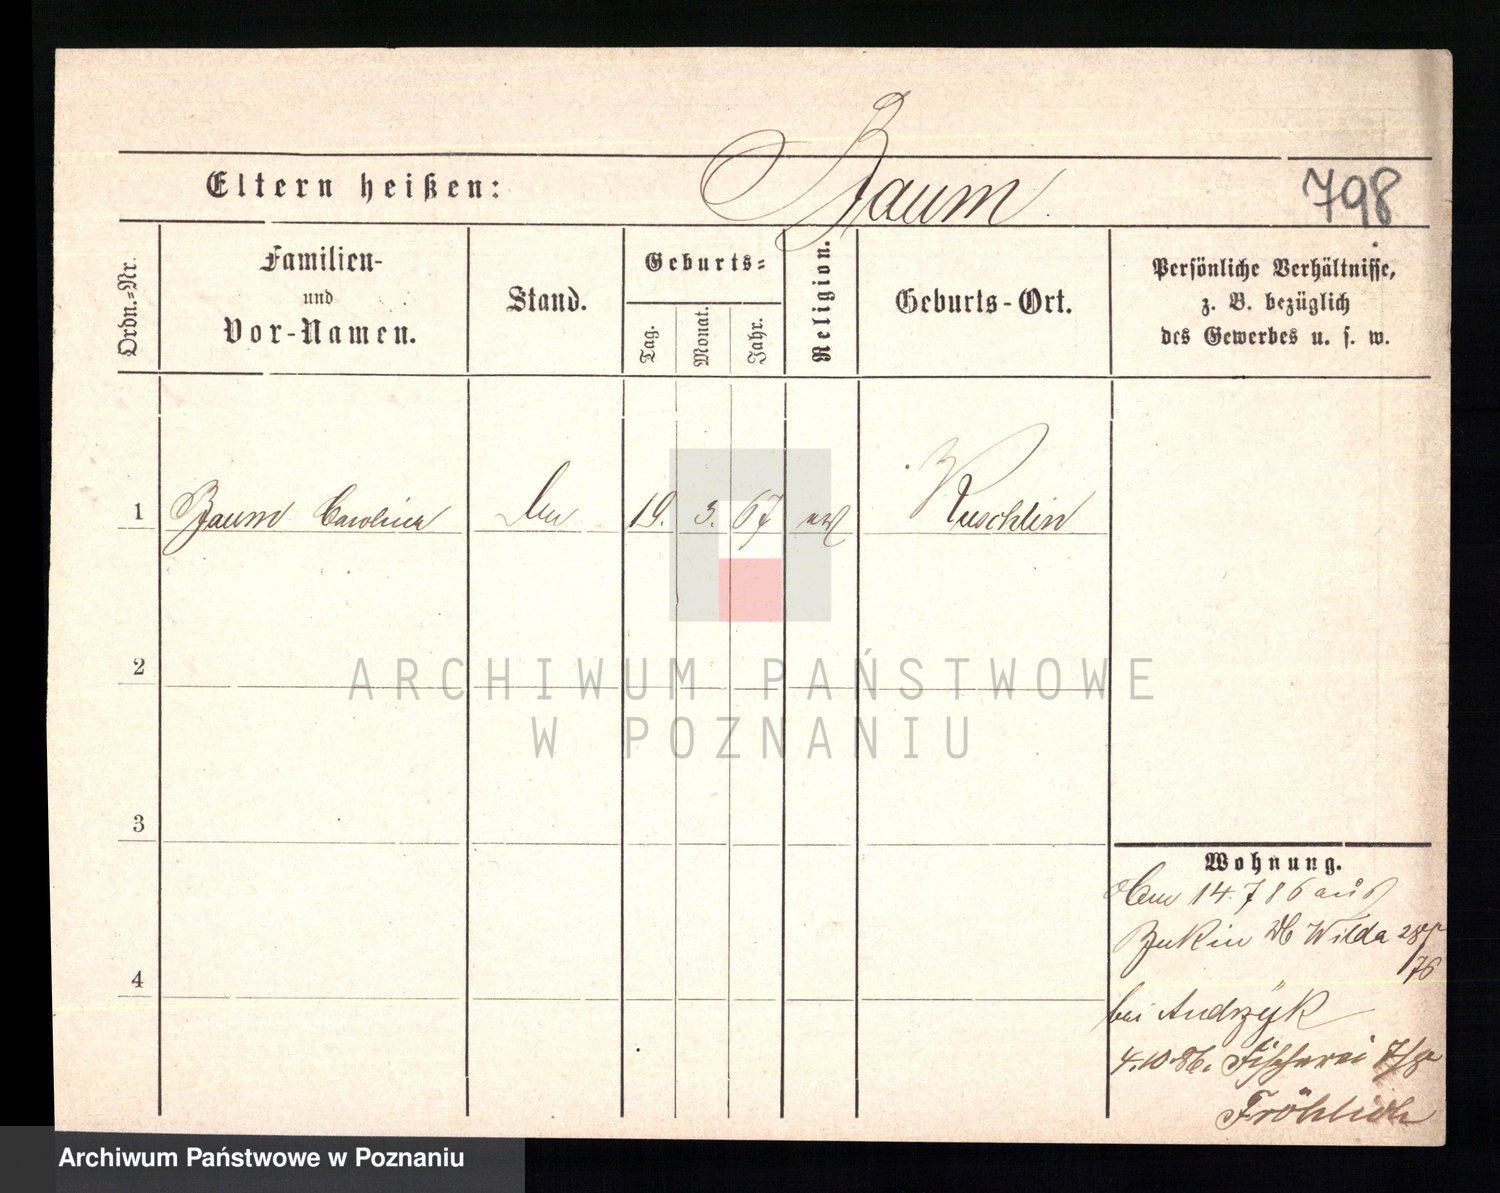 Eltern heißen: Baum 798
Ordn.=Nr.
Familien-
und
Vor-Namen.
Stand.
Geburts=
Tag.
Monat.
Jahr.
Religion.
Geburts-Ort.
Persönliche Verhältnisse,
z. B. bezüglich
des Gewerbes u. s. w.
1 Baum Carolina 19. 3. 67 Kuschlin
2
3
4
Wohnung.
14 7 86 aus
Wilda
bei Andrzyk
4.10.86. Fischerei
Fröhlich
ARCHIWUM PAŃSTWOWE
W POZNANIU
Archiwum Państwowe w Poznaniu